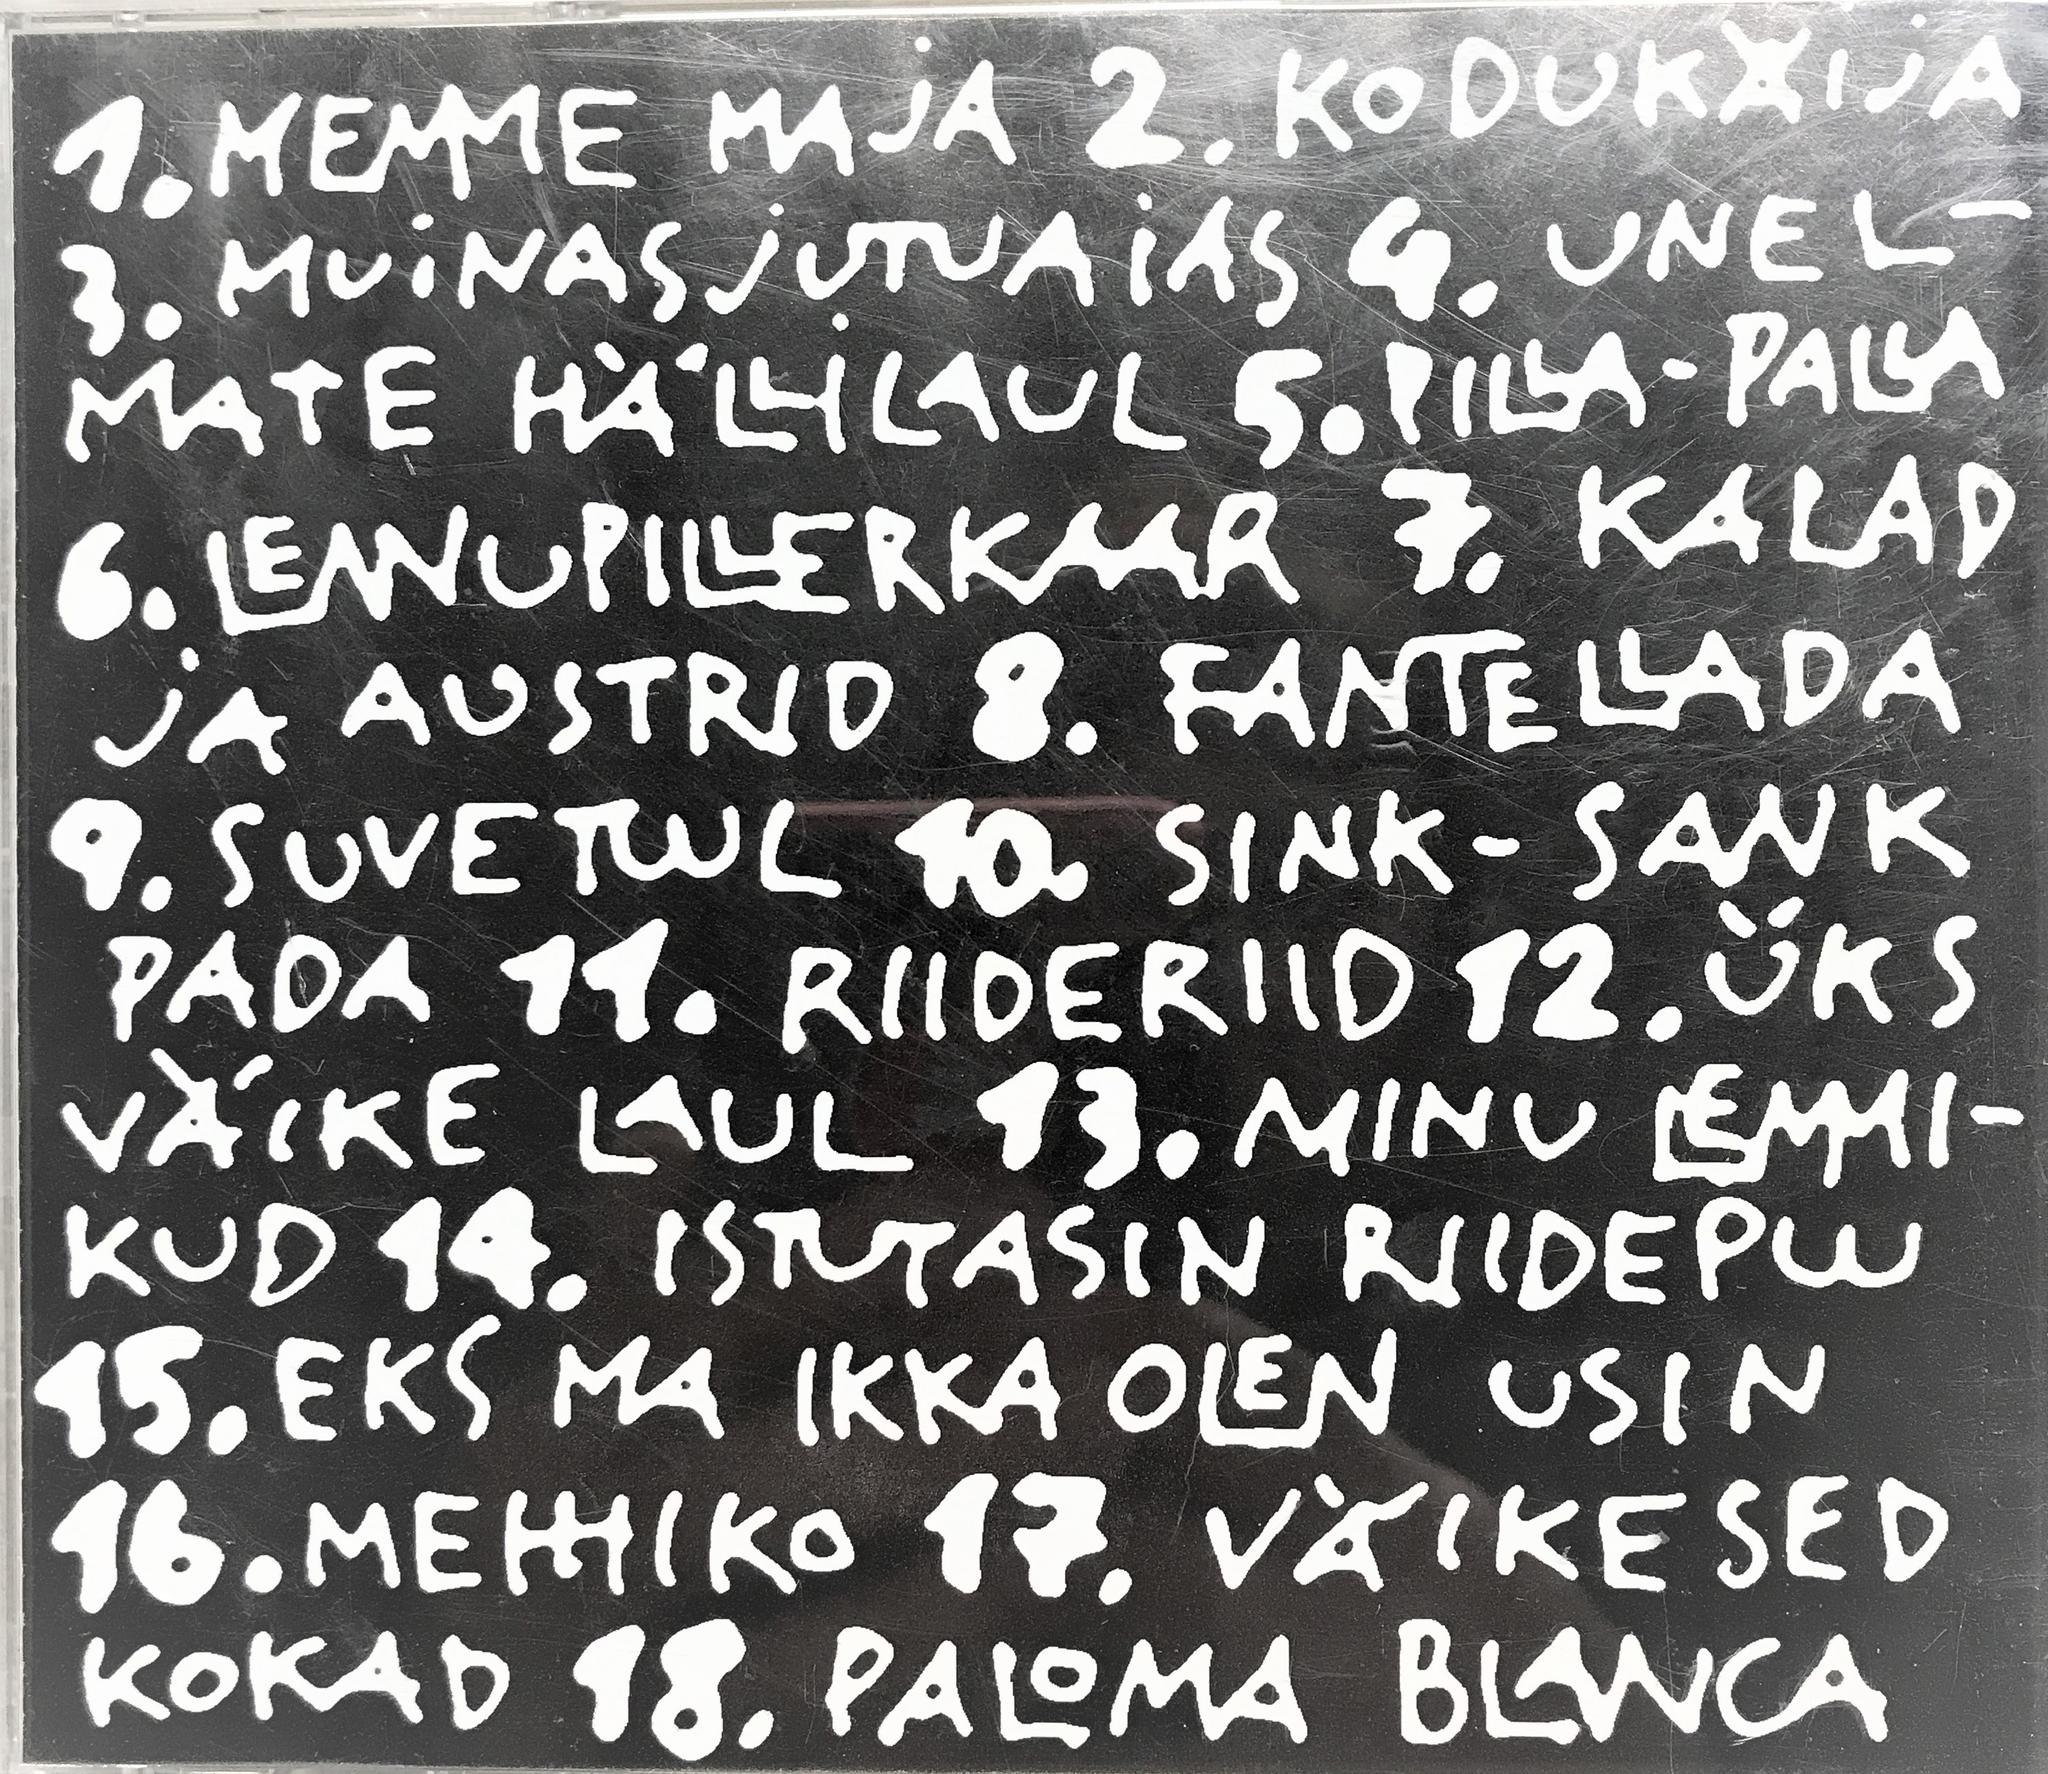 1. MEMME MAJA 2. KODUKÄIJA
3. MUINASJUTUAIAS 4. UNEL-
MATE HÄLLILAUL 5. PILLA-PALLA
6. LENNUPILLERKAAR 7. KALAD
JA AUSTRID 8. FANTELLADA
9. SUVETUUL 10. SINK-SANK
PADA 11. RIIDERIID 12. ÜKS
VÄIKE LAUL 13. MINU LEMMI-
KUD 14. ISTUTASIN RIIDEPUU
15. EKS MA IKKA OLEN USIN
16. MEHHIKO 17. VÄIKESED
KOKAD 18. PALOMA BLANCA